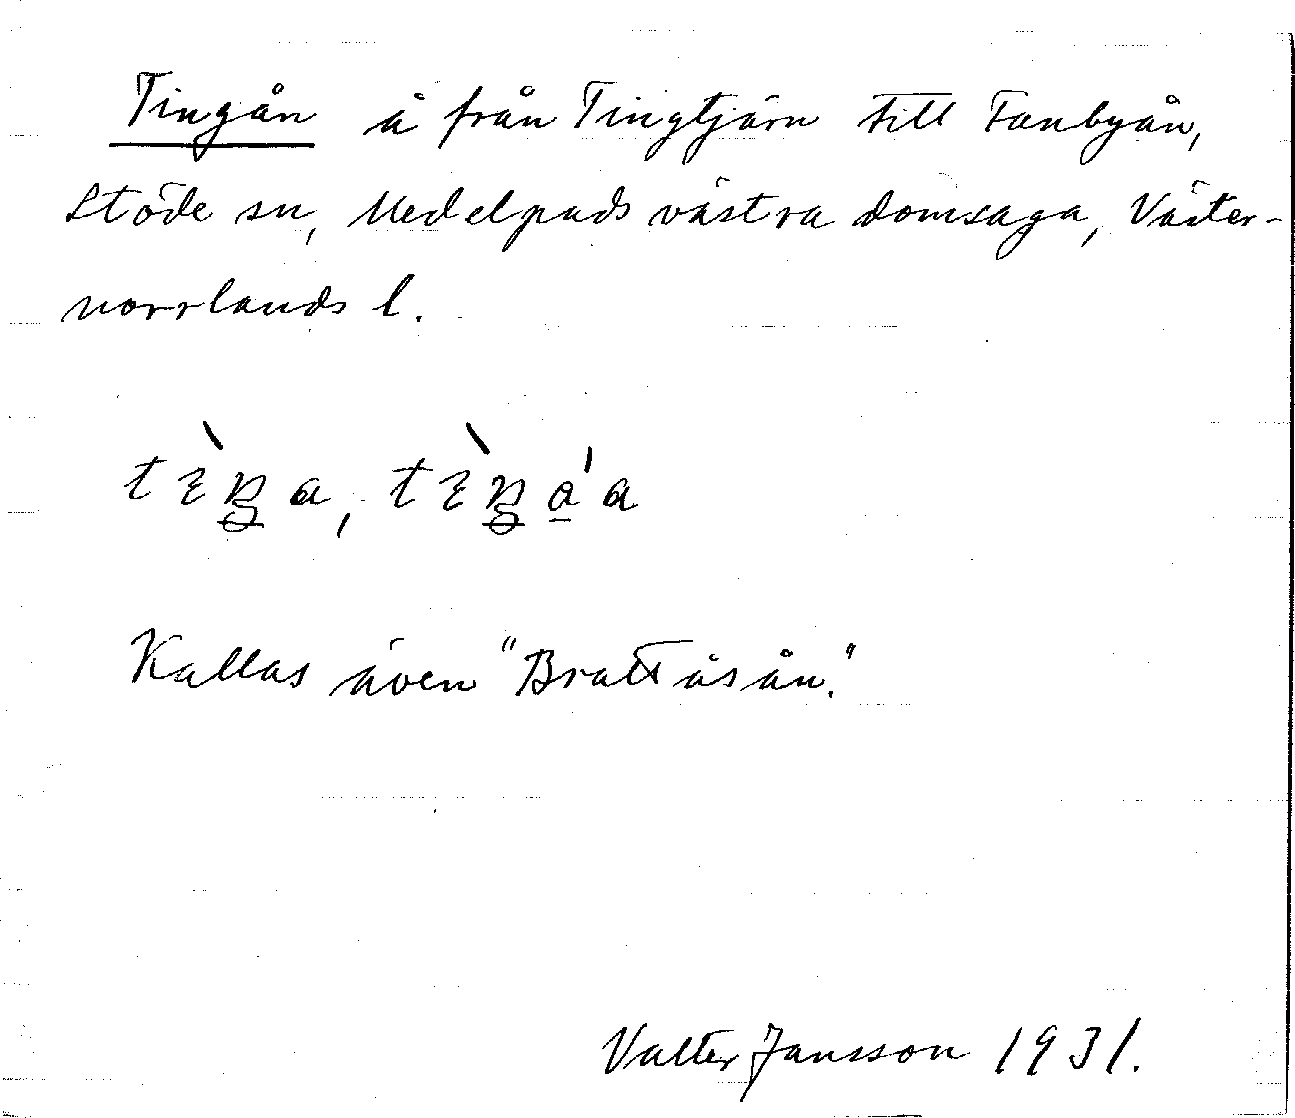 Tingån å från Tingtjärn till Fanbyån,
Stöde sn, Medelpads västra domsaga, Väster-
norrlands l.
Kallas även "Brattåsån."
Valter Jansson 1931.